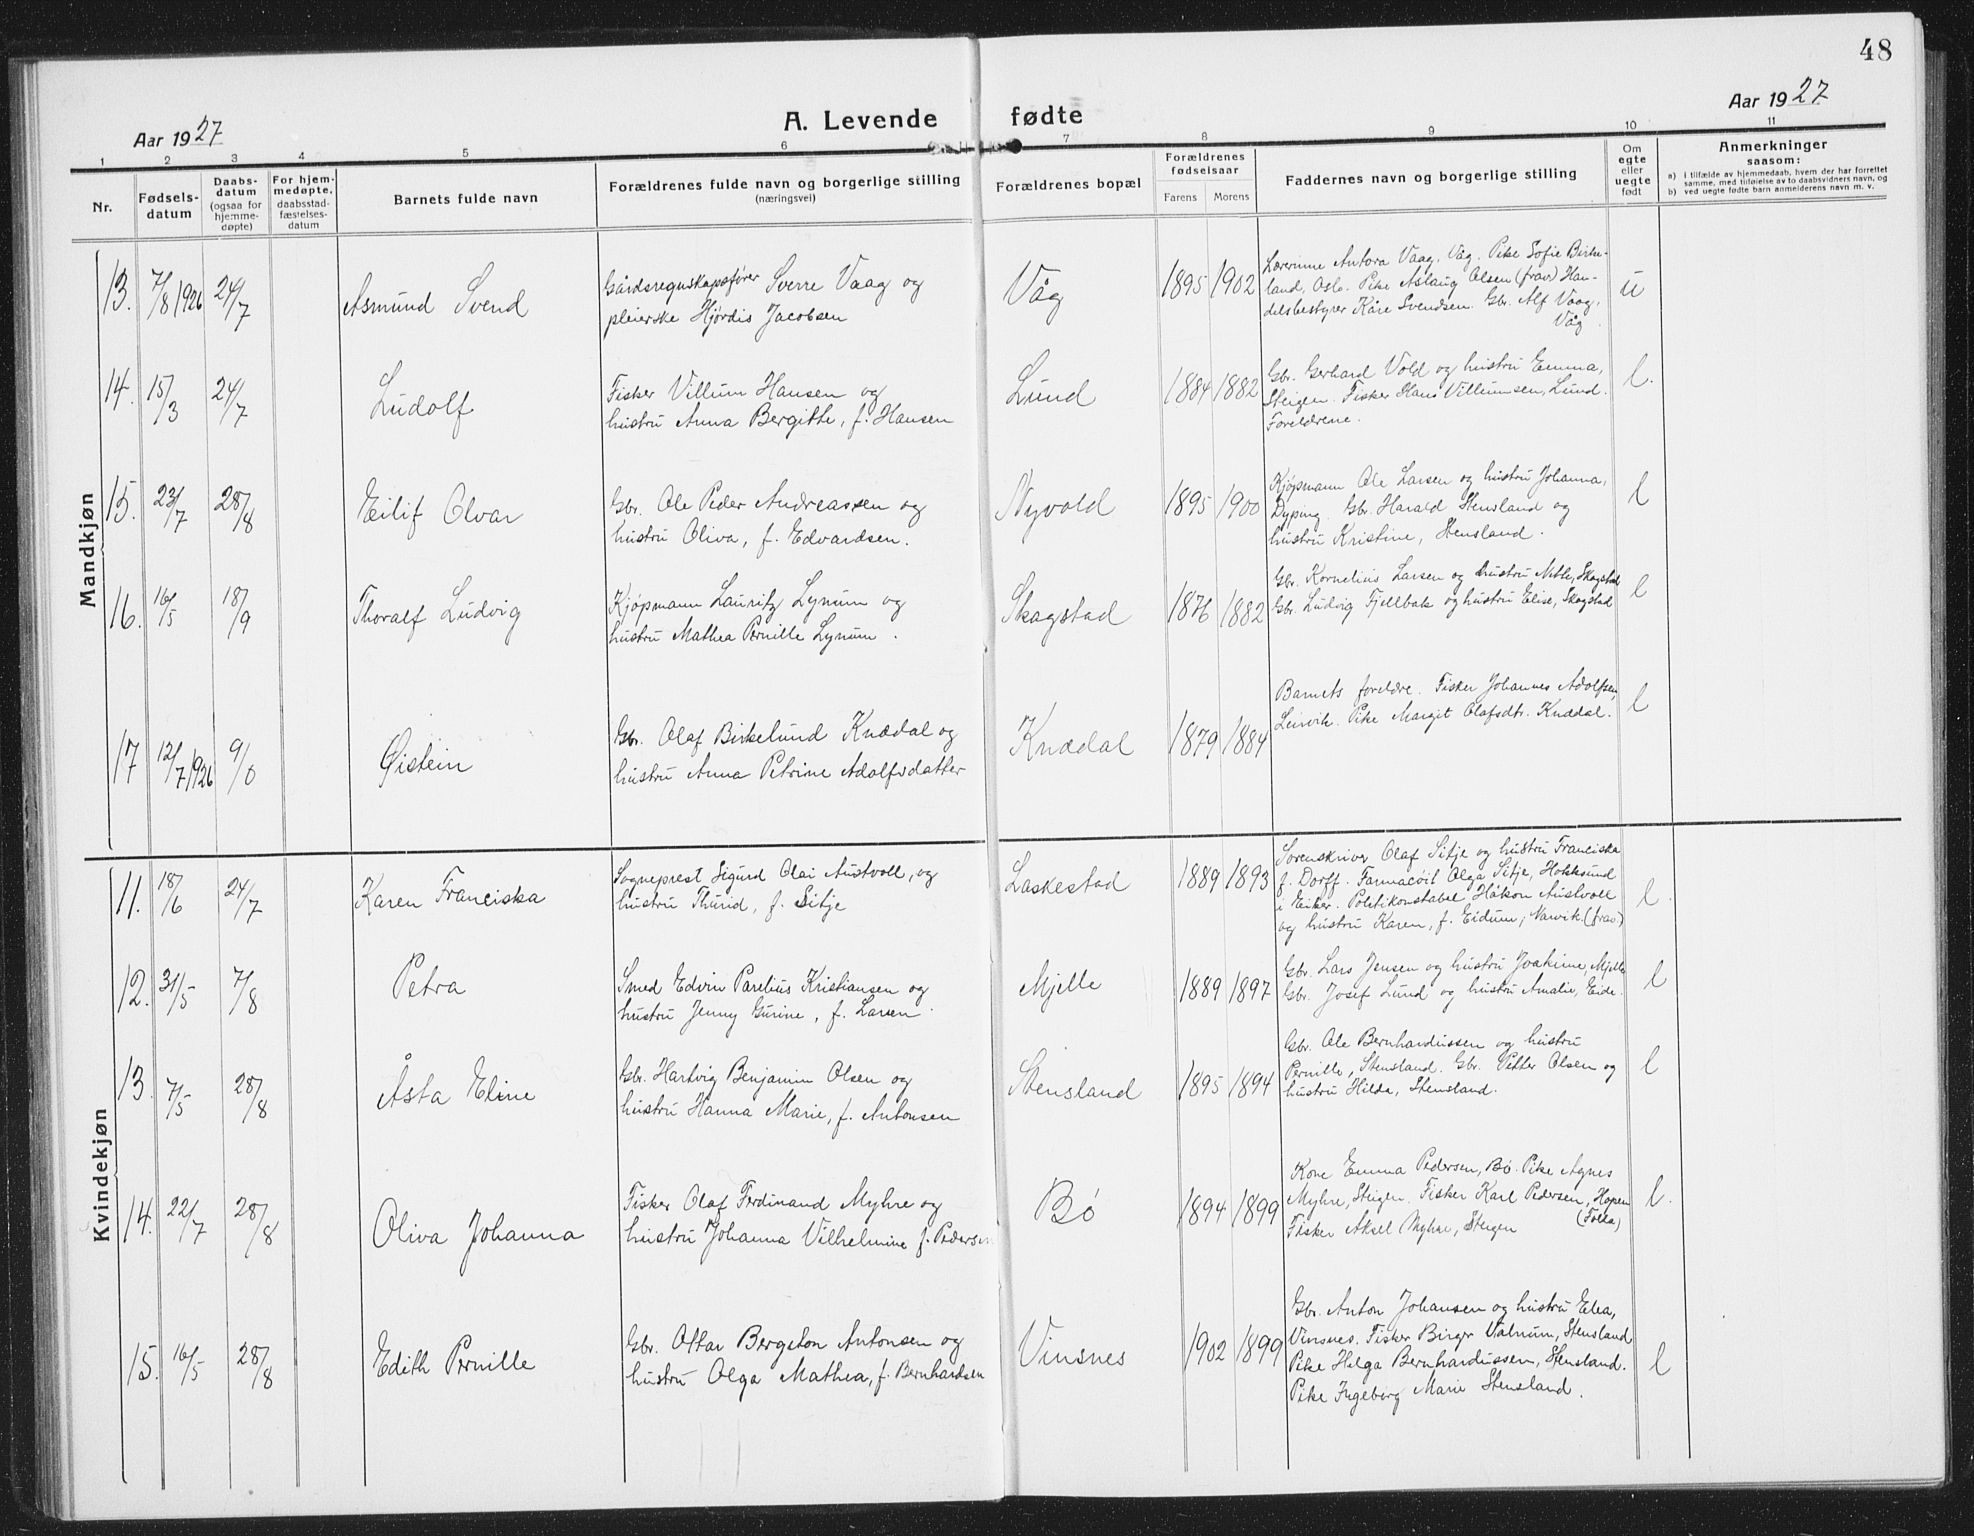 48
Aar 1927
A. Levende fødte
Aar 1927
1 2 3 4 5 6 7 8 9 10 11
Nr.
Fødsels-
datum
Daabs-
datum
(ogsaa for
hjemme-
døpte)
For hjem-
medøpte,
daabsstad-
fæstelses-
datum
Barnets fulde navn
Forældrenes fulde navn og borgerlige stilling
(næringsvei)
Forældrenes bopæl
Forældrenes
fødselsaar
Farens Morens
Faddernes navn og borgerlige stilling
Om
egte
eller
uegte
født
Anmerkninger
saasom:
a) i tilfælde av hjemmedaab, hvem der har forrettet
samme, med tilføielse av to daabsvidners navn, og
b) ved uegte fødte barn anmelderens navn m. v.
Mandkjøn
13. 7/8 1926 24/7 Asmund Svend
Gårdsregnskapsfører Sverre Vaag og
pleierske Hjørdis Jacobsen
Våg 1895 1902
Lærerinne Antora Vaag, Våg. Pike Sofie Birke-
land, Oslo. Pike Aslaug Olsen (frav.) Han-
delsbestyrer Kåre Svendsen. Gbr. Alf Vaag,
Våg.
u
14. 15/3 24/7 Ludolf
Fisker Villum Hansen og
hustru Anna Bergitte, f. Hansen
Lund 1884 1882
Gbr. Gerhard Vold og hustru Emma,
Steigen. Fisker Hans Villumsen, Lund.
Foreldrene.
l.
15. 23/7 28/8 Eilif Olvar
Gbr. Ole Peder Andreassen og
hustru Oliva, f. Edvardsen.
Nyvold 1895 1900
Kjøpmann Ole Larsen og hustru Johanna,
Dyping. Gbr. Harald Stensland og
hustru Kristine, Stensland.
l
16. 16/5 18/9 Thoralf Ludvig
Kjøpmann Lauritz Lynum og
hustru Mathea Pernille Lynum.
Skagstad 1876 1882
Gbr. Kornelius Larsen og hustru Nelle, Skagstad
Gbr. Ludvig Fjellbak og hustru Elise, Skagstad
l
17 12/7 1926 9/0 Øistein
Gbr. Olaf Birkelund Knædal og
hustru Anna Petrine Adolfsdatter
Knædal 1879 1884
Barnets foreldre. Fisker Johannes Adolfsen,
Leirvik. Pike Margit Olafsdtr. Knædal.
l
Kvindekjøn
11. 18/6 24/7 Karen Franciska
Sogneprest Sigurd Olai Austvoll, og
hustru Thurid, f. Sitje
Laskestad 1889 1893
Sorenskriver Olaf Sitje og hustru Franciska
f. Dorff. Farmacøit Olga Sitje, Hokksund
i Eiker. Politikonstabel Håkon Austvoll
og hustru Karen, f. Eidum, Narvik. (frav.)
l.
12. 31/5 7/8 Petra
Smed Edvin Parelius Kristiansen og
hustru Jenny Gurine, f. Larsen.
Mjelle 1889 1897
Gbr. Lars Jensen og hustru Joakime, Mjelle
Gbr. Josef Lund og hustru Amalie, Eide.
l
13. 7/5 28/8 Åsta Eline
Gbr. Hartvig Benjamin Olsen og
hustru Hanna Marie, f. Antonsen
Stensland 1895 1894
Gbr. Ole Bernhardussen og hustru
Pernille, Stensland. Gbr. Petter Olsen og
hustru Hilda, Stensland.
l
14. 22/7 28/8 Oliva Johanna
Fisker Olaf Ferdinand Myhre og
hustru Johanna Vilhelmine f. Pedersen
Bø 1894 1899
Kone Emma Pedersen, Bø. Pike Agnes
Myhre, Steigen. Fisker Karl Pedersen, Hopen
(Folla)
Fisker Aksel Myhre, Steigen
l.
15. 16/5 28/8 Edith Pernille
Gbr. Ottar Bergeton Antonsen og
hustru Olga Mathea, f. Bernhardsen
Vinsnes 1902 1899
Gbr. Anton Johansen og hustru Elea,
Vinsnes. Fisker Birger Valnum, Stensland
Pike Helga Bernhardussen, Stensland.
Pike Ingeborg Marie Stensland.
l